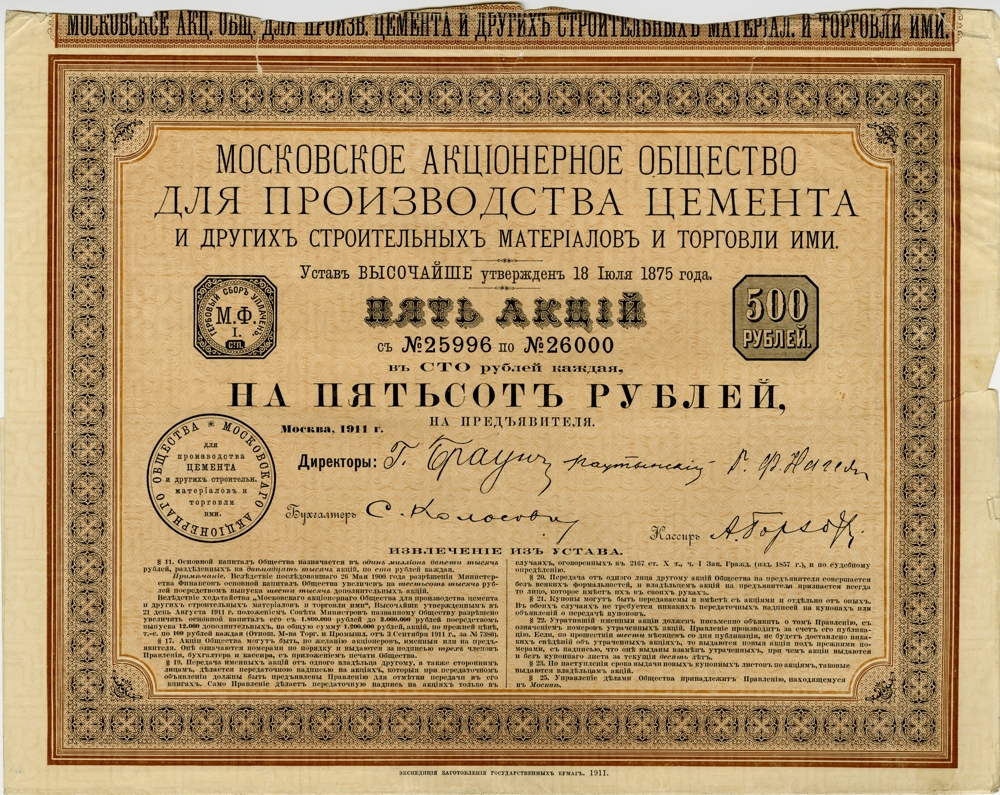 МОСКОВСКОЕ АКЦ. ОБЩ. ДЛЯ ПРОИЗВ. ЦЕМЕНТА И ДРУГИХЪ СТРОИТЕЛЬНЫХЪ МАТЕРІАЛ. И ТОРГОВЛИ ИМИ.
МОСКОВСКОЕ АКЦІОНЕРНОЕ ОБЩЕСТВО
ДЛЯ ПРОИЗВОДСТВА ЦЕМЕНТА
И ДРУГИХЪ СТРОИТЕЛЬНЫХЪ МАТЕРІАЛОВЪ И ТОРГОВЛИ ИМИ.
Уставъ ВЫСОЧАЙШЕ утвержденъ 18 Іюля 1875 года.
ГЕРБОВЫЙ СБОРЪ УПЛАЧЕНЪ.
М.Ф.
I.
СТП.
ПЯТЬ АКЦІЙ
500
РУБЛЕЙ.
съ №25996 по №26000
въ СТО рублей каждая,
НА ПЯТЬСОТЪ РУБЛЕЙ,
НА ПРЕДЪЯВИТЕЛЯ.
Москва, 1911 г.
МОСКОВСКАГО АКЦІОНЕРНАГО ОБЩЕСТВА
для
производства
ЦЕМЕНТА
и другихъ строительн.
матеріаловъ и
торговли
ими.
Директоры: Г. Браунъ
Бухгалтеръ С.
Кассиръ А.
ИЗВЛЕЧЕНІЕ ИЗЪ УСТАВА.
§ 11. Основной капиталъ Общества назначается въ одинъ милліонъ двѣсти тысячъ
рублей, раздѣленныхъ на двѣнадцать тысячъ акцій, по ста рублей каждая.
Примѣчаніе. Вслѣдствіе послѣдовавшаго 26 Мая 1900 года разрѣшенія Министер-
ства Финансовъ основной капиталъ Общества увеличенъ на шестьсотъ тысячъ руб-
лей посредствомъ выпуска шести тысячъ дополнительныхъ акцій.
Вслѣдствіе ходатайства „Московскаго акціонернаго Общества для производства цемента
и другихъ строительныхъ матеріаловъ и торговли ими“, Высочайше утвержденнымъ въ
21 день Августа 1911 г. положеніемъ Совѣта Министровъ названному Обществу разрѣшено
увеличить основной капиталъ его съ 1.800.000 рублей до 3.000.000 рублей посредствомъ
выпуска 12.000 дополнительныхъ, на общую сумму 1.200.000 рублей, акцій, по прежней цѣнѣ,
т.-е. по 100 рублей каждая (Отнош. М-ва Торг. и Промышл. отъ 3 Сентября 1911 г., за № 7380).
§ 17. Акціи Общества могутъ быть, по желанію акціонеровъ, именныя или на предъ-
явителя. Онѣ означаются номерами по порядку и выдаются за подписью трехъ членовъ
Правленія, бухгалтера и кассира, съ приложеніемъ печати Общества.
§ 19. Передача именныхъ акцій отъ одного владѣльца другому, а также стороннимъ
лицамъ, дѣлается передаточною надписью на акціяхъ, которыя при передаточномъ
объявленіи должны быть предъявлены Правленію для отмѣтки передачи въ его
книгахъ. Само Правленіе дѣлаетъ передаточную надпись на акціяхъ только въ
случаяхъ, оговоренныхъ въ 2167 ст. X т., ч. I Зак. Гражд. (изд. 1857 г.), и по судебному
опредѣленію.
§ 20. Передача отъ одного лица другому акцій Общества на предъявителя совершается
безъ всякихъ формальностей, и владѣльцемъ акцій на предъявителя признается всегда
то лицо, которое имѣетъ ихъ въ своихъ рукахъ.
§ 21. Купоны могутъ быть передаваемы и вмѣстѣ съ акціями и отдѣльно отъ оныхъ.
Въ обоихъ случаяхъ не требуется никакихъ передаточныхъ надписей на купонахъ или
объявленій о передачѣ купоновъ.
§ 22. Утратившій именныя акціи долженъ письменно объявить о томъ Правленію, съ
означеніемъ номеровъ утраченныхъ акцій. Правленіе производитъ за счетъ его публика-
цію. Если, по прошествіи шести мѣсяцевъ со дня публикаціи, не будетъ доставлено ника-
кихъ свѣдѣній объ утраченныхъ акціяхъ, то выдаются новыя акціи подъ прежними но-
мерами, съ надписью, что онѣ выданы взамѣнъ утраченныхъ, при чемъ акціи выдаются
и безъ купоннаго листа на текущія десять лѣтъ.
§ 23. По наступленіи срока выдачи новыхъ купонныхъ листовъ по акціямъ, таковые
выдаются владѣльцамъ акцій.
§ 25. Управленіе дѣлами Общества принадлежитъ Правленію, находящемуся
въ Москвѣ.
ЭКСПЕДИЦІЯ ЗАГОТОВЛЕНІЯ ГОСУДАРСТВЕННЫХЪ БУМАГЪ. 1911.